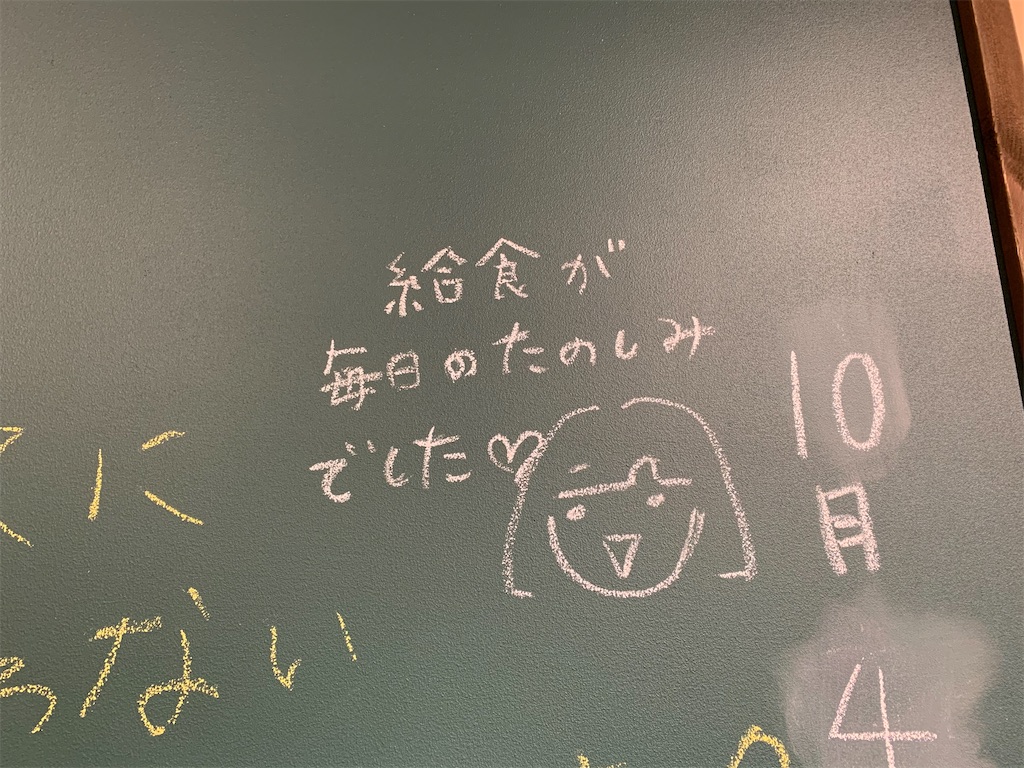 給食が
毎日のたのしみ
でした♡
10
月
4
に
ない